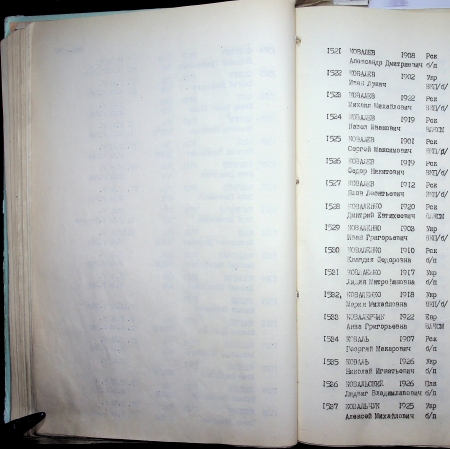 1521 КОВАЛЕВ 1908 Рск
Александр Дмитриевич б/п
1522 КОВАЛЕВ 1902 Укр
Иван Лукич ВКП/б/
1523 КОВАЛЕВ 1922 Рск
Михаил Михайлович ВКП/б/
1524 КОВАЛЕВ 1919 Рск
Павел Иванович ВЛКСМ
1525 КОВАЛЕВ 1901 Рск
Сергей Максимович ВКП/б/
1526 КОВАЛЕВ 1919 Рск
Федор Никитович ВКП/б/
1527 КОВАЛЕВ 1912 Рск
Яков Леонтьевич ВКП/б/
1528 КОВАЛЕНКО 1920 Рск
Дмитрий Евтихеевич ВЛКСМ
1529 КОВАЛЕНКО 1903 Укр
Иван Григорьевич ВКП/б/
1530 КОВАЛЕНКО 1910 Рск
Клавдия Федоровна б/п
1531 КОВАЛЕНКО 1917 Укр
Лидия Митрофановна б/п
1532, КОВАЛЕНКО 1918 Укр
Мария Михайловна ВКП/б/
1533 КОВАЛЕРЧИК 1922 Евр
Анна Григорьевна ВЛКСМ
1534 КОВАЛЬ 1907 Рск
Георгий Макарович б/п
1535 КОВАЛЬ 1926 Укр
Николай Игнатьевич б/п
1536 КОВАЛЬСКИЙ 1926 Плк
Людвиг Владиславович б/п
1537 КОВАЛЬЧУК 1925 Укр
Алексей Михайлович б/п